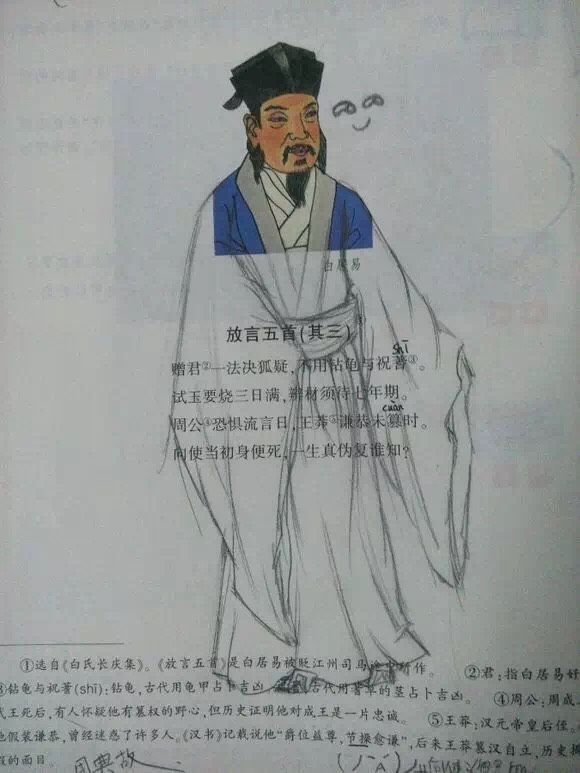 白居易
放言五首(其三)
shī
赠君②一法决狐疑,不用钻龟与祝蓍③。
试玉要烧三日满,辨材须待七年期。
cuàn
周公④恐惧流言日,王莽⑤谦恭未篡时。
向使当初身便死,一生真伪复谁知?
①选自《白氏长庆集》。《放言五首》是白居易被贬江州司马途中所作。 ②君:指白居易好
③钻龟与祝蓍(shī):钻龟,古代用龟甲占卜吉凶 古代用蓍草的茎占卜吉凶。 ④周公:周成
武王死后,有人怀疑他有篡权的野心,但历史证明他对成王是一片忠诚。 ⑤王莽:汉元帝皇后侄。
他假装谦恭,曾经迷惑了许多人。《汉书》记载说他“爵位益尊,节操愈谦”,后来王莽篡汉自立,历史揭
假的面目。
用典故